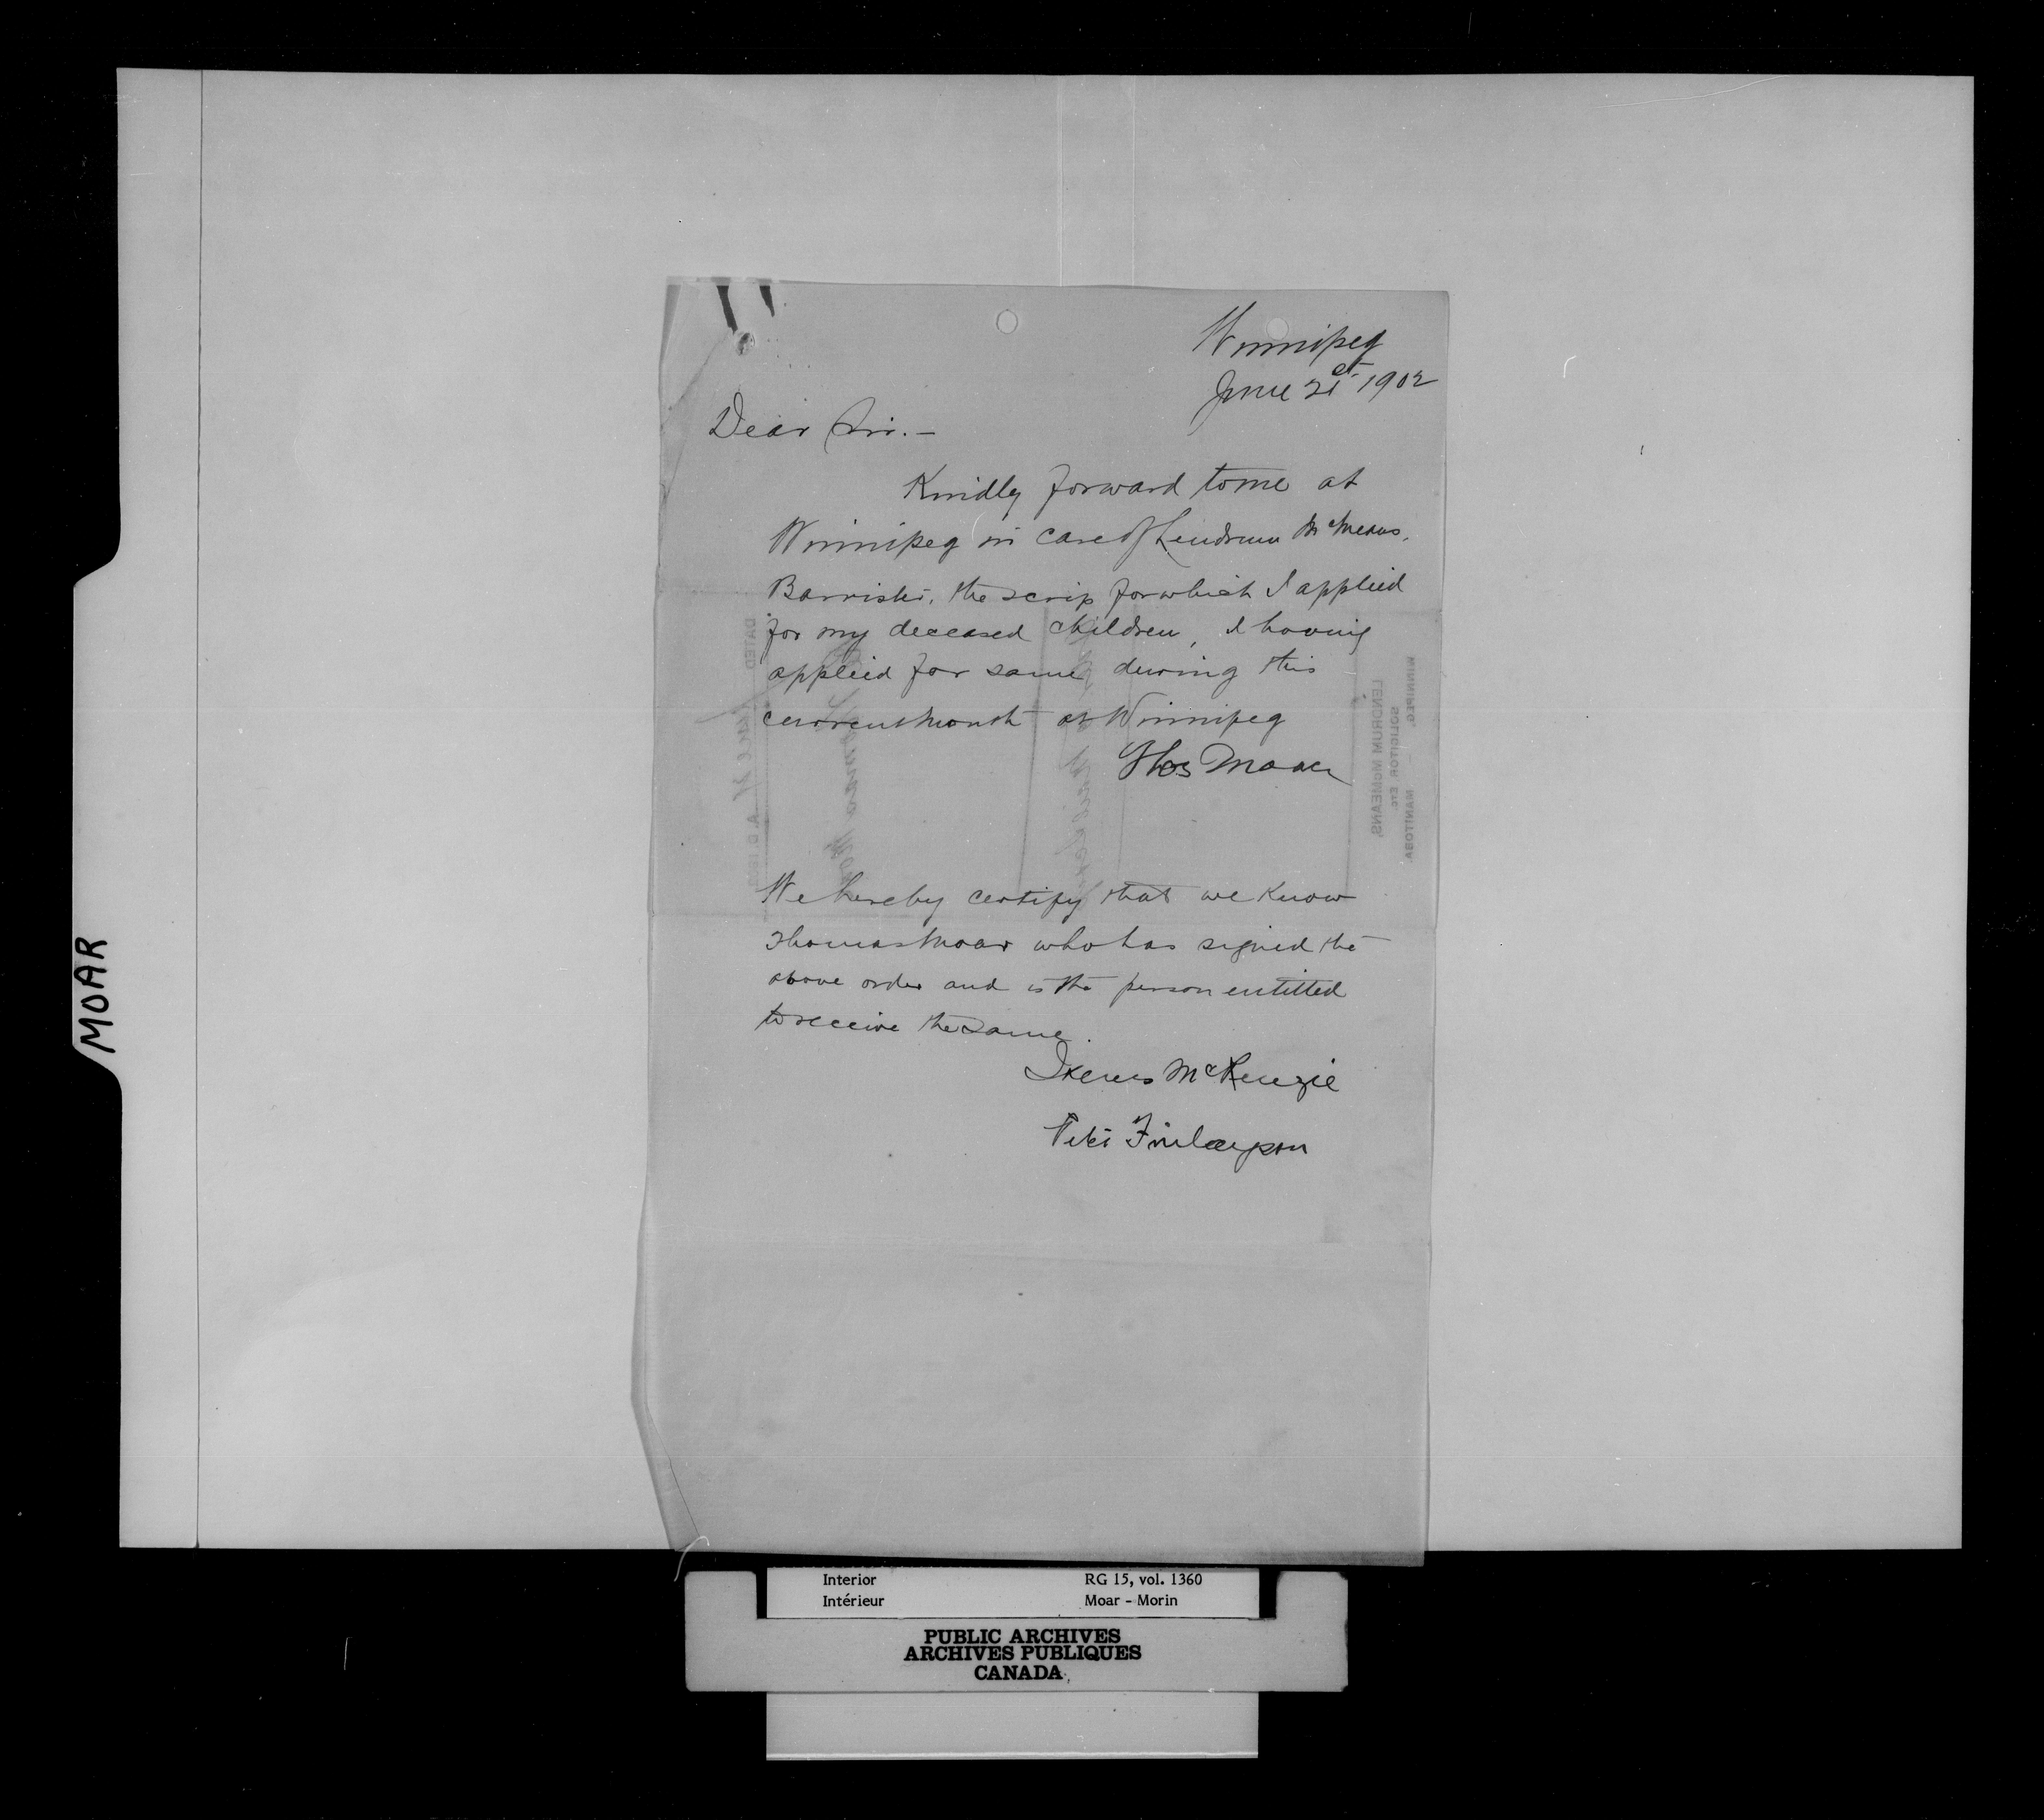 Winnipeg
June 21st 1902
Dear Sir. —
Kindly forward to me at
Winnipeg in care of Lendrum McMeans,
Barrister, the scrip for which I applied
for my deceased children, I having
applied for same, during this
current month at Winnipeg
Thos Moar
We hereby certify that we know
Thomas Moar who has signed the
above order and is the person entitled
to receive the same.
McKenzie
Finlayson
MOAR
DATED
LENDRUM McMEANS,
SOLICITOR ETC.
WINNIPEG, — MANITOBA.
Interior RG 15, vol. 1360
Intérieur Moar - Morin
PUBLIC ARCHIVES
ARCHIVES PUBLIQUES
CANADA